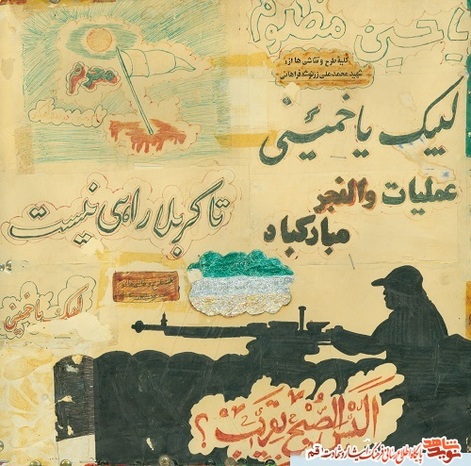 یا حسین مظلوم
کلیهٔ طرح و نقاشی ها از:
شهید محمد علی زرنوشه فراهانی
محرم
لبیک یا خمینی
عملیات والفجر
مبارکباد
تا کربلا راهی نیست
لبیک یا خمینی
الیس الصبح بقریب ؟
نوید شاهد
پایگاه اطلاع رسانی فرهنگ ایثار و شهادت قم